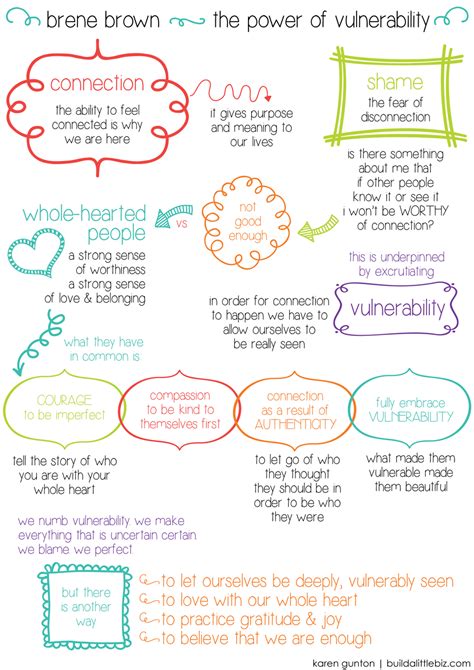 brene brown the power of vulnerability
connection
the ability to feel
connected is why
we are here
it gives purpose
and meaning to
our lives
shame
the fear of
disconnection
is there something
about me that
if other people
know it or see it
i won't be WORTHY
of connection?
whole-hearted
people
vs
not
good
enough
a strong sense
of worthiness
a strong sense
of love & belonging
this is underpinned
by excrutiating
vulnerability
in order for connection
to happen we have to
allow ourselves to
be really seen
what they have
in common is
COURAGE
to be imperfect
compassion
to be kind to
themselves first
connection
as a result of
AUTHENTICITY
fully embrace
VULNERABILITY
tell the story of who
you are with your
whole heart
to let go of who
they thought
they should be in
order to be who
they were
what made them
vulnerable made
them beautiful
we numb vulnerability we make
everything that is uncertain certain
we blame we perfect
but there
is another
way
to let ourselves be deeply, vulnerably seen
to love with our whole heart
to practice gratitude & joy
to believe that we are enough
karen gunton | buildalittlebiz.com